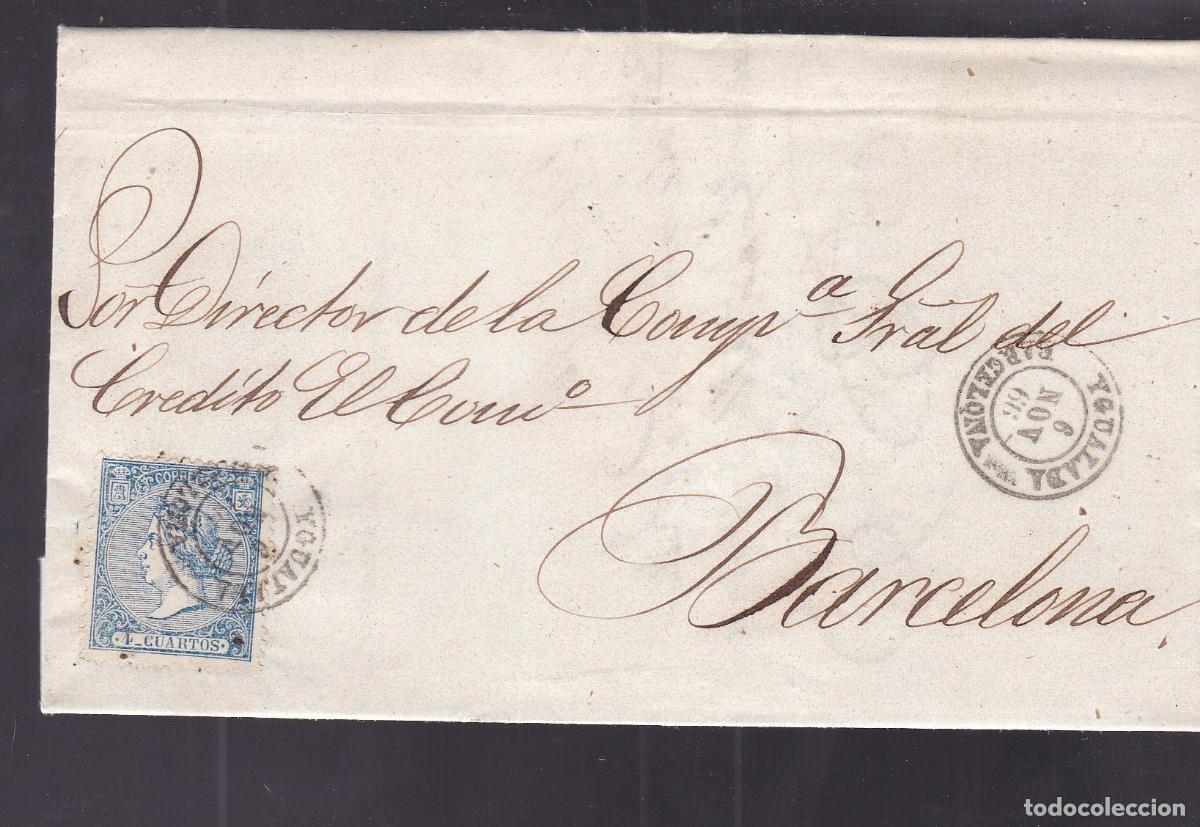 Sor Director de la Comp.ª Gral del
Credito El Comº
Barcelona
YGUALADA
BARCELONA
9
NOV
66
CORREOS
4_CUARTOS
YGUALADA
todocoleccion